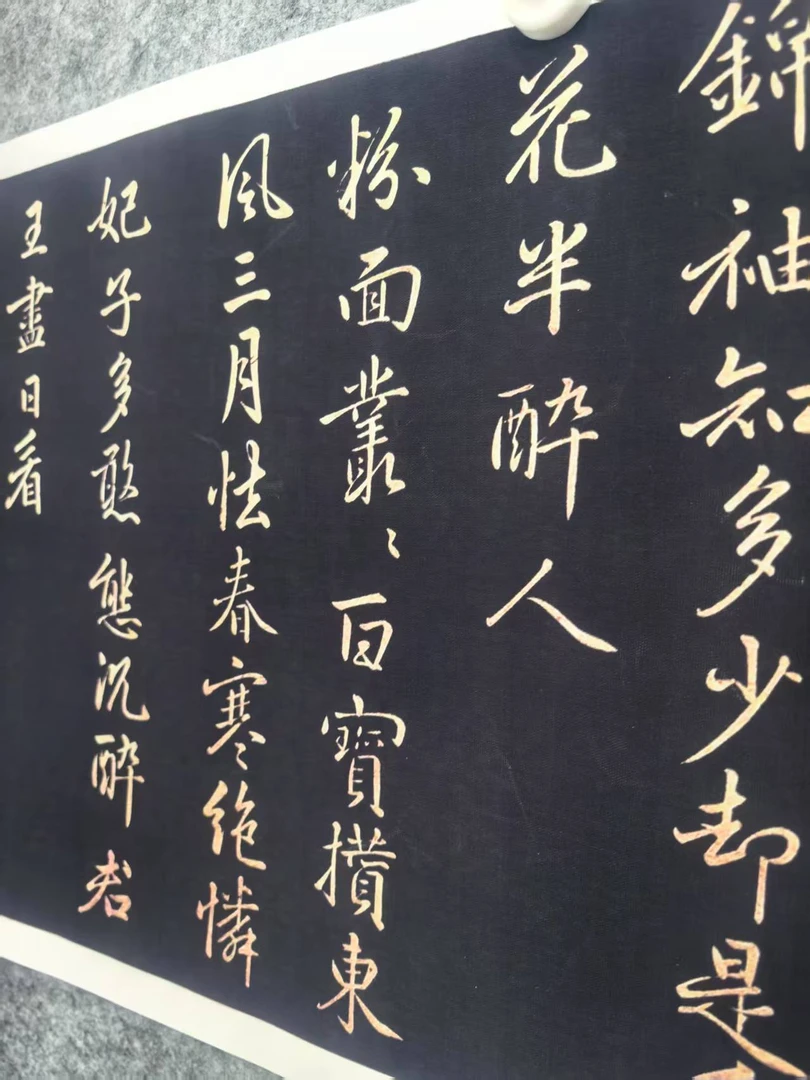 錦袖知多少却是
花半醉人
粉面叢〻百寶攢東
風三月怯春寒絶憐
妃子多憨態沉醉君
王盡日看